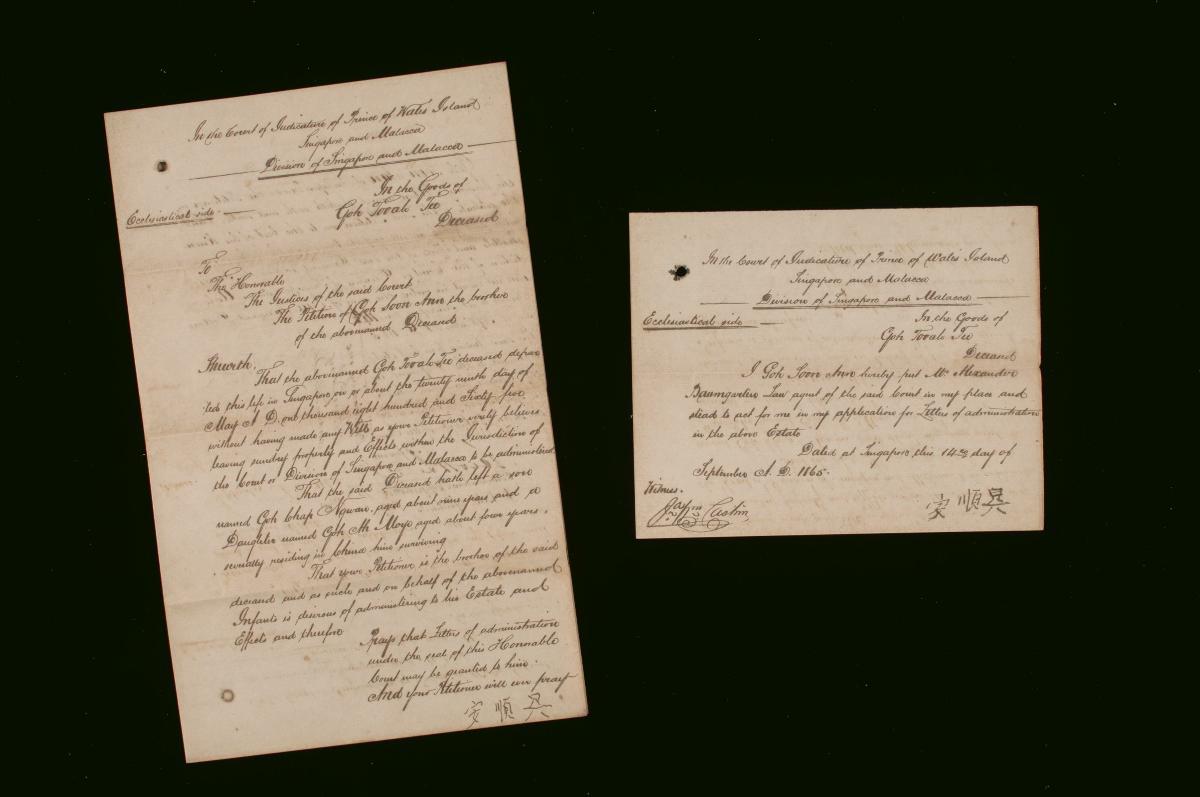 In the Court of Judicature of Prince of Wales Island
Singapore and Malacca
Division of Singapore and Malacca
Ecclesiastical side
In the Goods of
Goh Tooah Tee
Deceased
To
The Honorable
The Justices of the said Court
The Petition of Goh Soon Ann the brother
of the abovenamed Deceased
Sheweth.
That the abovenamed Goh Tooah Tee deceased depar
ted this life in Singapore on or about the twenty ninth day of
May A D. one thousand eight hundred and Sixty five
without having made any Will as your Petitioner verily believes
leaving sundry property and Effects within the Jurisdiction of
the Court or Division of Singapore and Malacca to be administered
That the said Deceased hath left a son
named Goh Chap Ngwan, aged about nine years and a
Daughter named Goh Ah Moye aged about four years,
severally residing in China him surviving
That your Petitioner is the brother of the said
deceased and as such and on behalf of the abovenamed
Infants is desirous of administering to his Estate and
Effects and therefore
Prays that Letters of administration
under the seal of this Honorable
Court may be granted to him.
And your Petitioner will ever pray
安順吳
In the Court of Judicature of Prince of Wales Island
Singapore and Malacca
Division of Singapore and Malacca
Ecclesiastical side
In the Goods of
Goh Tooah Tee
Deceased
I Goh Soon Ann hereby put Mr Alexander
Baumgarten Law agent of the said Court in my place and
stead to act for me in my application for Letters of administration
in the above Estate
Dated at Singapore this 14th day of
September A. D. 1865.
Witness.
安順吳